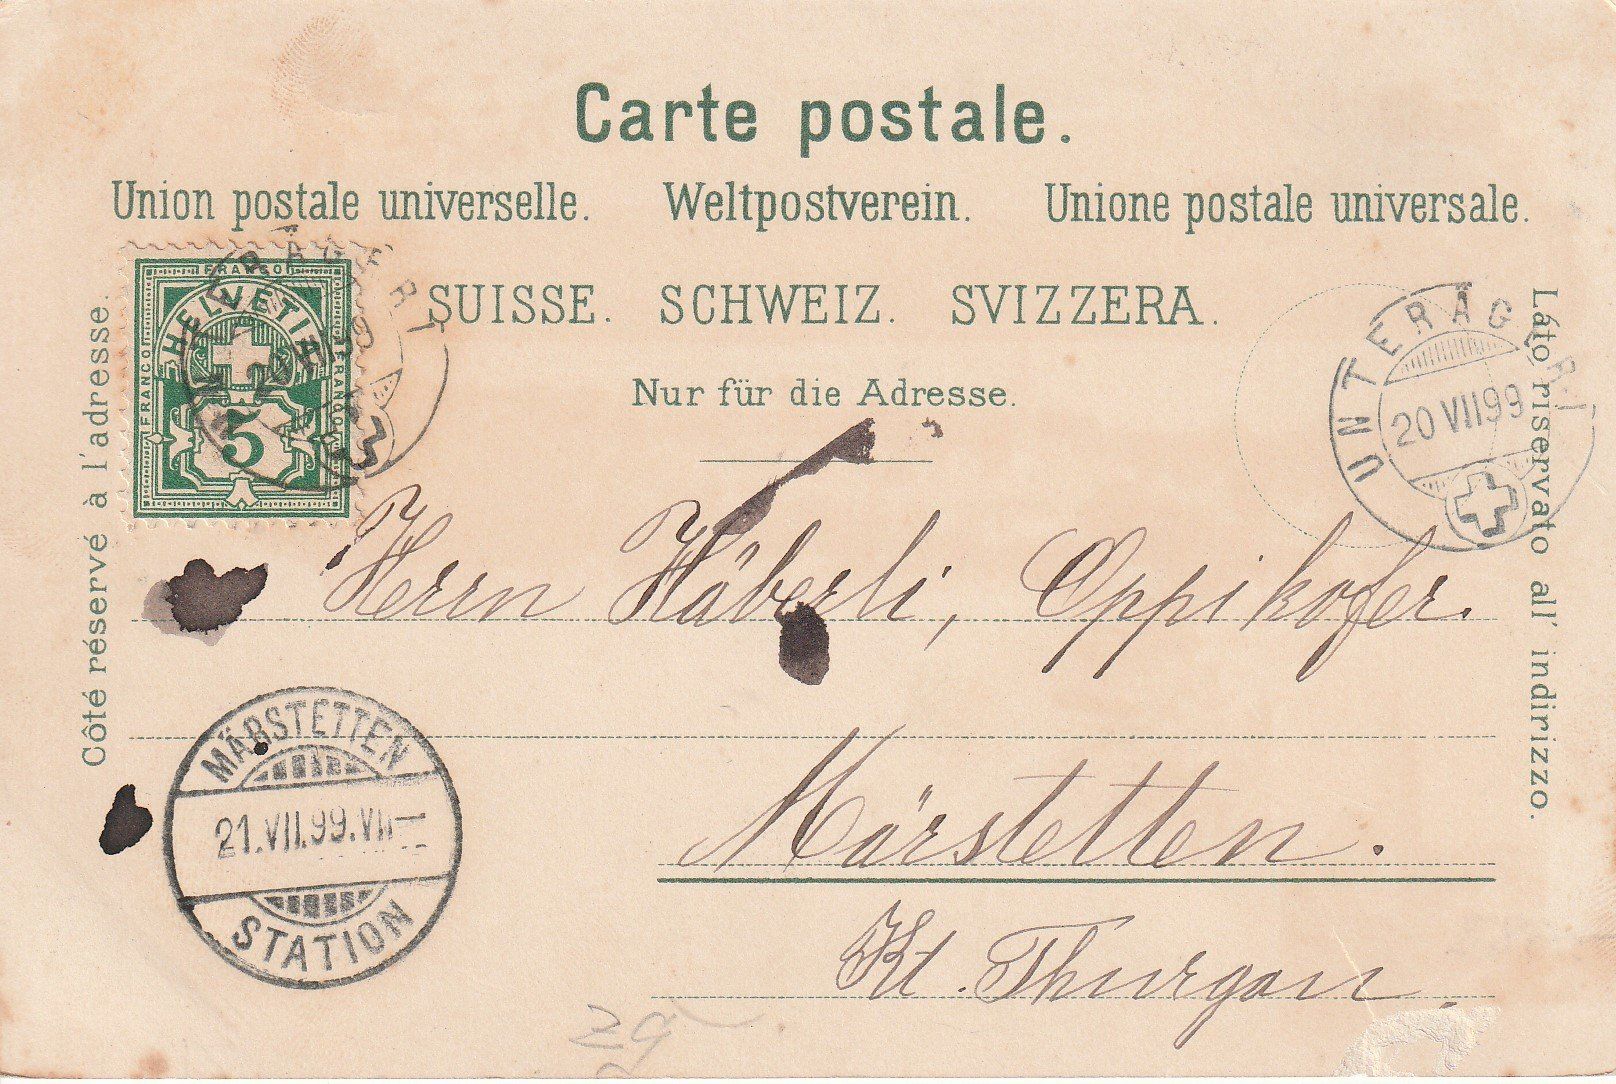 Carte postale.
Union postale universelle. Weltpostverein. Unione postale universale.
SUISSE. SCHWEIZ. SVIZZERA.
Nur für die Adresse.
Côté réservé à l'adresse.
Láto riservato all' indirizzo.
FRANCO
HELVETIA
FRANCO
FRANCO
5
UNTERÄGERI
20 VII 99
Herrn Häberli, Oppikofer.
Märstetten.
Kt. Thurgau.
MÄRSTETTEN
21.VII.99.VII
STATION
zg